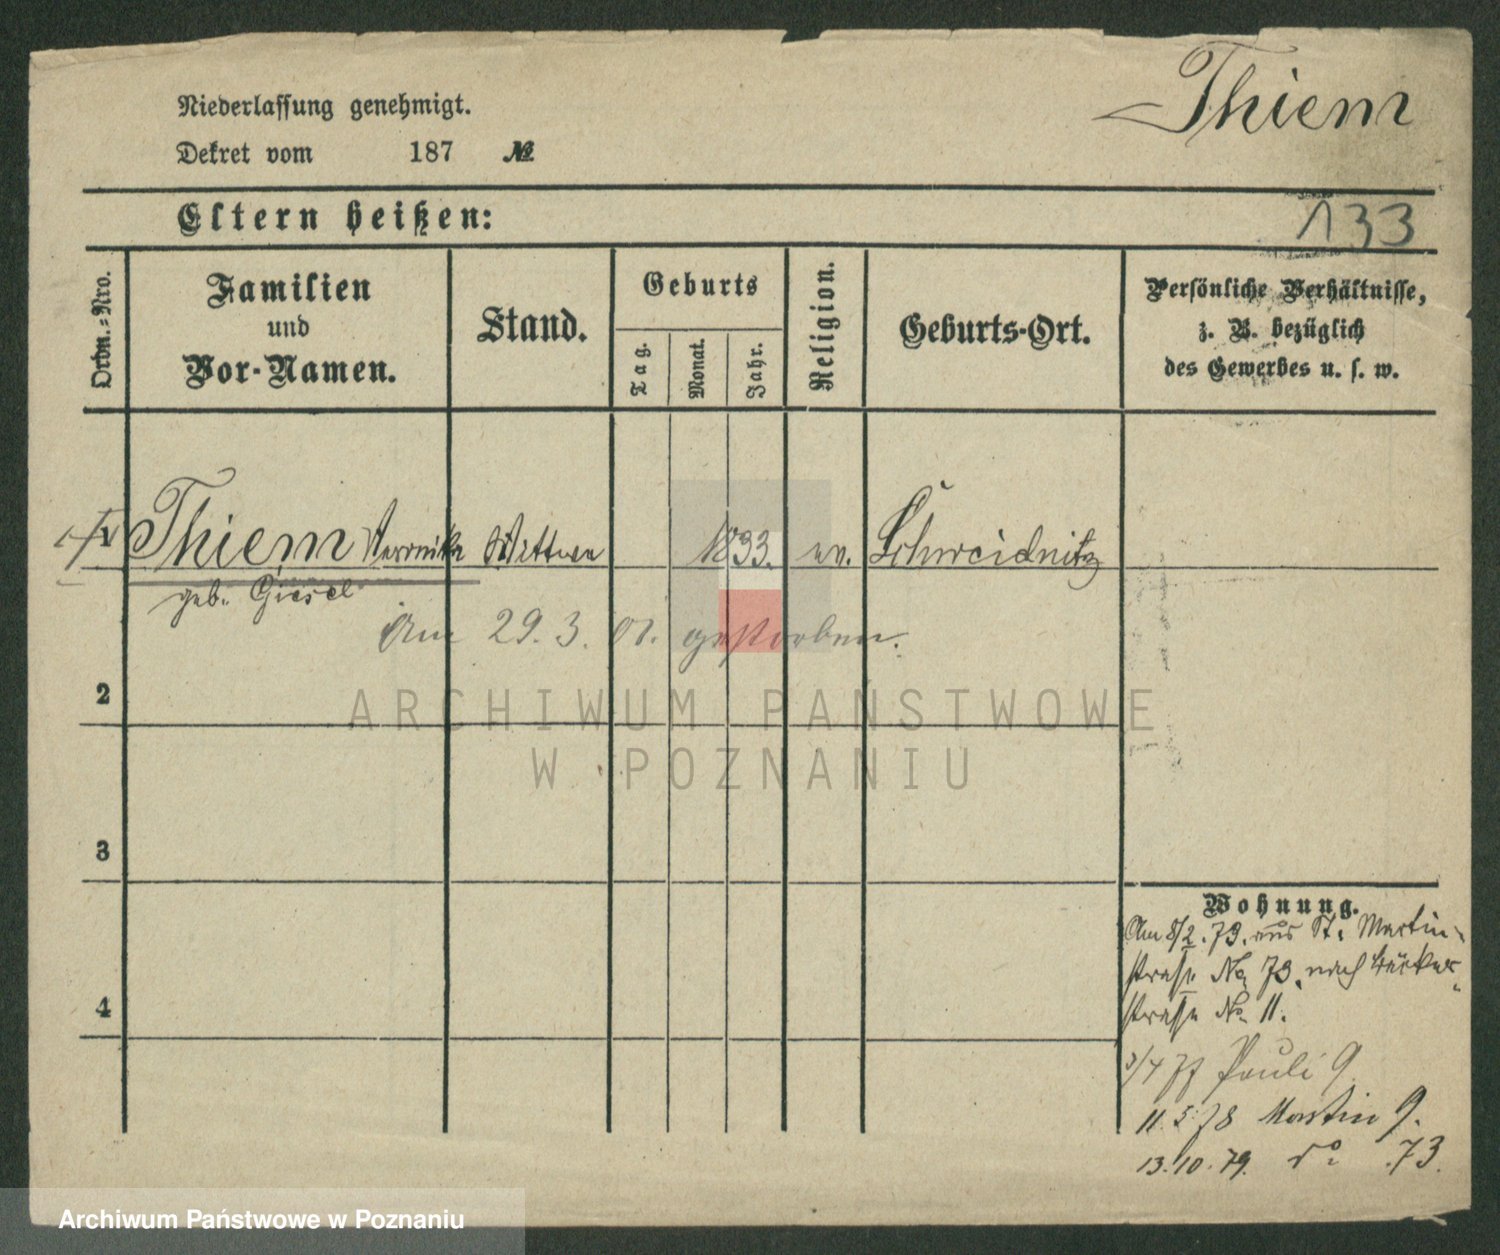 Thiem
Niederlassung genehmigt.
Dekret vom 187 №
Eltern heißen:
133
Ordn.=Nro.
Familien
und
Vor-Namen.
Stand.
Geburts
Tag.
Monat.
Jahr.
Religion.
Geburts-Ort.
Persönliche Verhältnisse,
z. B. bezüglich
des Gewerbes u. s. w.
1 Thiem Veronika Wittwe 1833. ev. Schweidnitz
geb. Giesel
Am 29. 3. 01. gestorben.
2
3
4
Wohnung.
Am 8/2. 73. aus St. Martin-
straße No 73. nach Bäcker-
straße No 11.
3/4 77 Pauli 9
11. 5. 78 Martin 9.
13. 10. 79. do 73.
ARCHIWUM PAŃSTWOWE
W POZNANIU
Archiwum Państwowe w Poznaniu